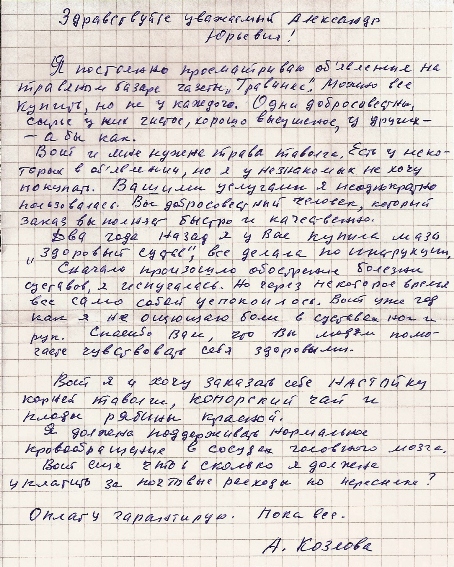 Здравствуйте уважаемый Александр
Юрьевич!
Я постоянно просматриваю об'явления на
травяном базаре газеты „Травинка". Можно все
купить, но не у каждого. Одни добросовестны,
сырье у них чистое, хорошо высушенное, у других-
- а бы как.
Вот и мне нужна трава таволга. Есть у неко-
торых в об'явлении, но я у незнакомых не хочу
покупать. Вашими услугами я неоднократно
пользовалась. Вы добросовестный человек, который
заказ выполняет быстро и качественно.
Два года назад я у Вас купила мазь
„Здоровый сустав", все делала по инструкции.
Сначала произошло обострение болезни
суставов, я испугалась. Но через некоторое время
все само собой успокоилось. Вот уже год
как я не ощющаю боли в суставах ног и
рук. Спасибо Вам, что Вы людям помо-
гаете чувствовать себя здоровыми.
Вот я и хочу заказать себе настойку
корней таволги, копорский чай и
плоды рябины красной.
Я должна поддерживать нормальное
кровообращение в сосудах головного мозга.
Вот еще что сколько я должна
уплатить за почтовые расходы по пересылке?
Оплату гарантирую. Пока все.
А. Козлова